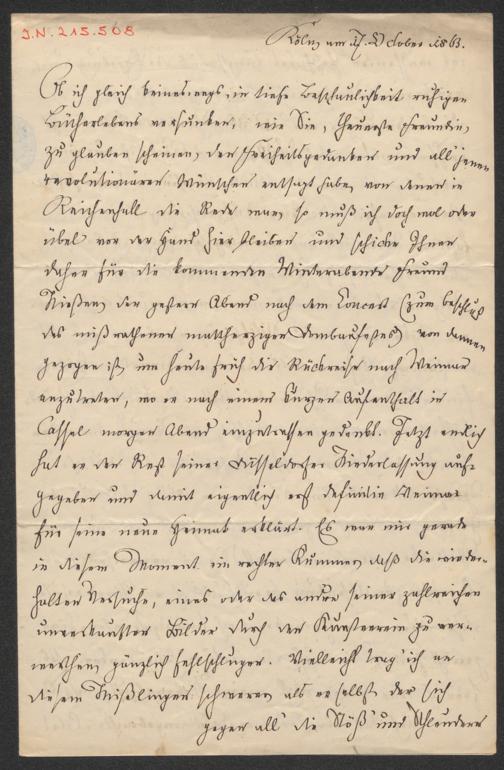 J.N. 215.508
Köln am 17. October 1863.
Ob ich gleich keineswegs in tiefe Beschaulichkeit ruhigen
Bücherlebens versunken, wie Sie, theuerste Freundin,
zu glauben scheinen, den Freiheitsgedanken und all' jenen
revolutionären Wünschen entsagt habe, von denen in
Reichenhall die Rede war, so muß ich doch wol oder
übel vor der Hand hier bleiben und schicke Ihnen
daher für die kommenden Winterabende Freund
Nießen, der gestern Abend nach dem Concert (zum Beschluß
des mißrathenen mattherzigen Dombaufestes) von dannen
gezogen ist, um heute früh die Rückreise nach Weimar
anzutreten, wo er nach einem kurzen Aufenthalt in
Cassel morgen Abend einzutreffen gedenkt. Jetzt endlich
hat er den Rest seiner Düsseldorfer Niederlassung auf-
gegeben und damit eigentlich erst definitiv Weimar
für seine neue Heimat erklärt. Es war mir gerade
in diesem Moment ein rechter Kummer, daß die wieder-
holten Versuche, eines oder das andre seiner zahlreichen
unverkauften Bilder durch den Kunstverein zu ver-
werthen, gänzlich fehlschlugen. Vielleicht trag' ich an
diesem Mißlingen schwerer als er selbst, der sich
gegen all' die Stöß' und Schleudern